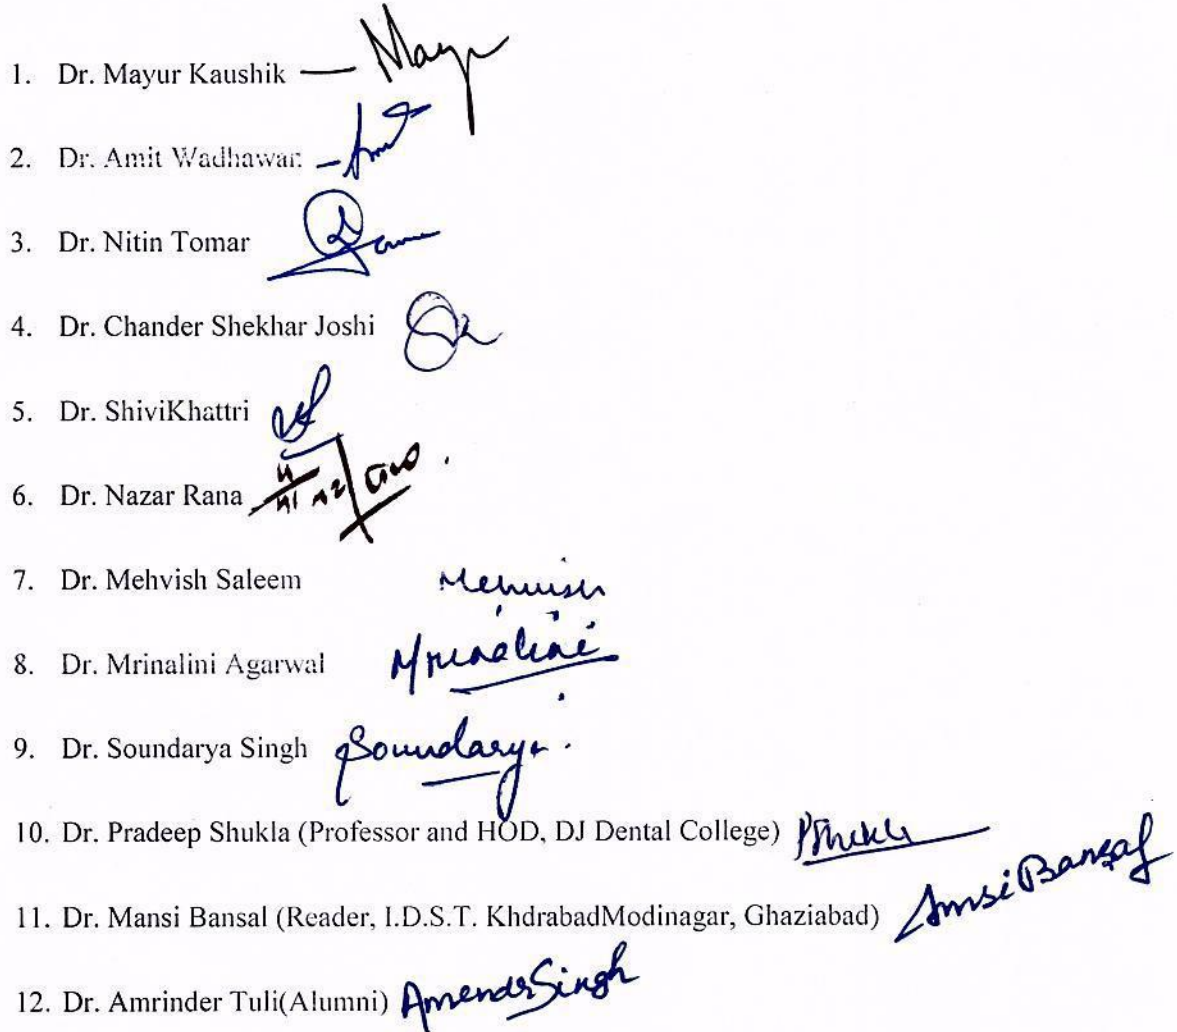 1. Dr. Mayur Kaushik —
2. Dr. Amit Wadhawan –
3. Dr. Nitin Tomar
4. Dr. Chander Shekhar Joshi
5. Dr. ShiviKhattri
6. Dr. Nazar Rana
7. Dr. Mehvish Saleem Mehvish
8. Dr. Mrinalini Agarwal Mrinalini
9. Dr. Soundarya Singh Soundarya
10. Dr. Pradeep Shukla (Professor and HOD, DJ Dental College) PShukla
11. Dr. Mansi Bansal (Reader, I.D.S.T. KhdrabadModinagar, Ghaziabad) Bansal
12. Dr. Amrinder Tuli(Alumni) Singh